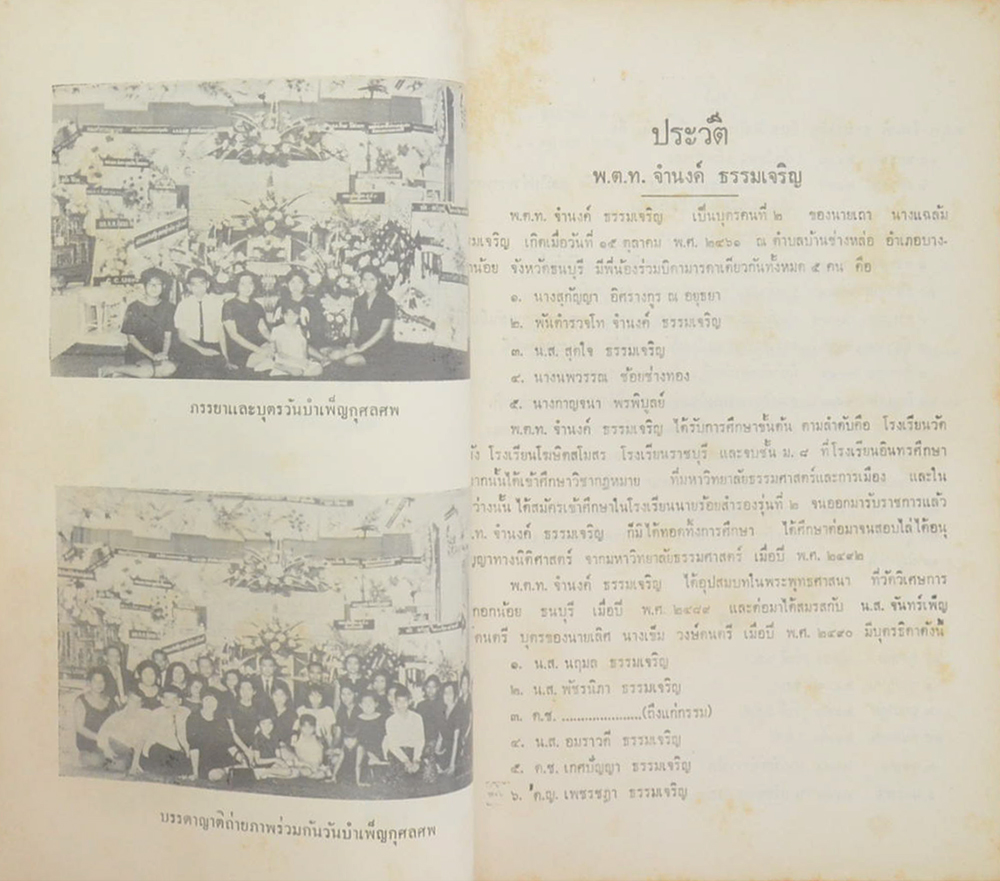 ภรรยาและบุตรวันบำเพ็ญกุศลศพ
บรรดาญาติถ่ายภาพร่วมกันวันบำเพ็ญกุศลศพ
ประวัติ
พ.ต.ท. จำนงค์ ธรรมเจริญ
พ.ต.ท. จำนงค์ ธรรมเจริญ เป็นบุตรคนที่ ๒ ของนายเถา นางแฉล้ม
มเจริญ เกิดเมื่อวันที่ ๑๕ ตุลาคม พ.ศ. ๒๔๖๑ ณ ตำบลบ้านช่างหล่อ อำเภอบาง-
กน้อย จังหวัดธนบุรี มีพี่น้องร่วมบิดามารดาเดียวกันทั้งหมด ๕ คน คือ
๑. นางสุกัญญา อิศรางกูร ณ อยุธยา
๒. พันตำรวจโท จำนงค์ ธรรมเจริญ
๓. น.ส. สุดใจ ธรรมเจริญ
๔. นางนพวรรณ ช้อยช่างทอง
๕. นางกาญจนา พรพิบูลย์
พ.ต.ท. จำนงค์ ธรรมเจริญ ได้รับการศึกษาขั้นต้น ตามลำดับคือ โรงเรียนวัด
ัง โรงเรียนโฆษิตสโมสร โรงเรียนราชบุรี และจบชั้น ม. ๘ ที่โรงเรียนอินทรศึกษา
ากนั้นได้เข้าศึกษาวิชากฎหมาย ที่มหาวิทยาลัยธรรมศาสตร์และการเมือง และใน
ว่างนั้น ได้สมัครเข้าศึกษาในโรงเรียนนายร้อยสำรองรุ่นที่ ๒ จนออกมารับราชการแล้ว
.ท. จำนงค์ ธรรมเจริญ ก็มิได้ทอดทิ้งการศึกษา ได้ศึกษาต่อมาจนสอบไล่ได้อนุ
ญาทางนิติศาสตร์ จากมหาวิทยาลัยธรรมศาสตร์ เมื่อปี พ.ศ. ๒๔๙๒
พ.ต.ท. จำนงค์ ธรรมเจริญ ได้อุปสมบทในพระพุทธศาสนา ที่วัดวิเศษการ
กอกน้อย ธนบุรี เมื่อปี พ.ศ. ๒๔๘๙ และต่อมาได้สมรสกับ น.ส. จันทร์เพ็ญ
์ดนตรี บุตรของนายเลิศ นางเข็ม วงษ์ดนตรี เมื่อปี พ.ศ. ๒๔๙๐ มีบุตรธิดาดังนี้
๑. น.ส. นฤมล ธรรมเจริญ
๒. น.ส. พัชรนิภา ธรรมเจริญ
๓. ด.ช. .....................(ถึงแก่กรรม)
๔. น.ส. อมราวดี ธรรมเจริญ
๕. ด.ช. เกศปัญญา ธรรมเจริญ
๖. ด.ญ. เพชรชฎา ธรรมเจริญ